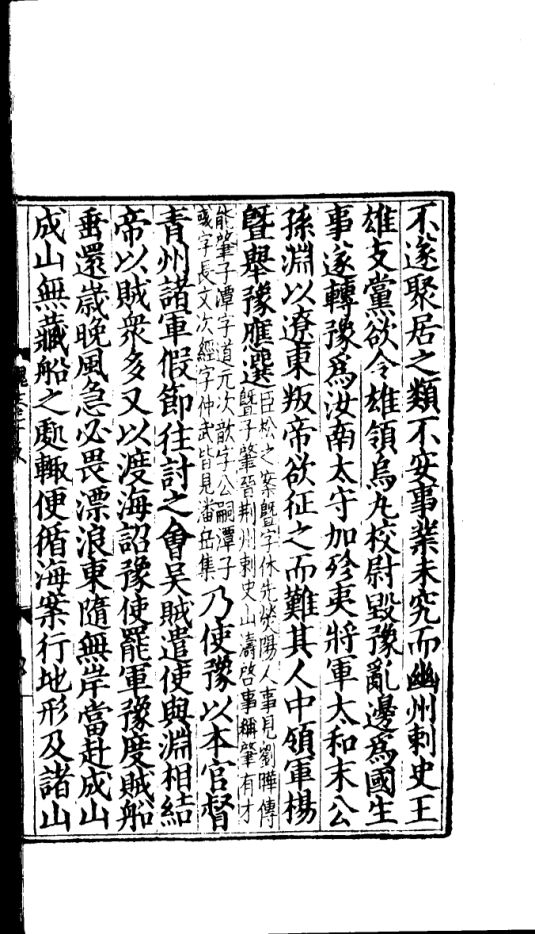 不遂聚居之類不安事業未究而幽州刺史王
雄支黨欲令雄領烏丸校尉毀豫亂邊爲國生
事遂轉豫爲汝南太守加殄夷將軍太和末公
孫淵以遼東叛帝欲征之而難其人中領軍楊
暨舉豫應選臣松之案暨字休先滎陽人事見劉曄傳
暨子肇晉荆州刺史山濤啓事稱肇有才
能肇子潭字道元次歆字公嗣潭子
彧字長文次經字仲武皆見潘岳集
乃使豫以本官督
青州諸軍假節往討之會吳賊遣使與淵相結
帝以賊衆多又以渡海詔豫使罷軍豫度賊船
垂還歲晚風急必畏漂浪東隨無岸當赴成山
成山無藏船之處輙便循海案行地形及諸山